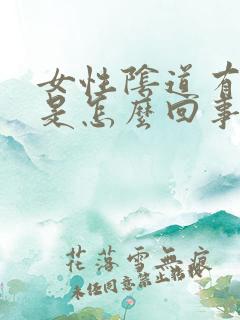 女性陰道有
是怎麼回事
花落雪無痕
未經同意禁止轉載